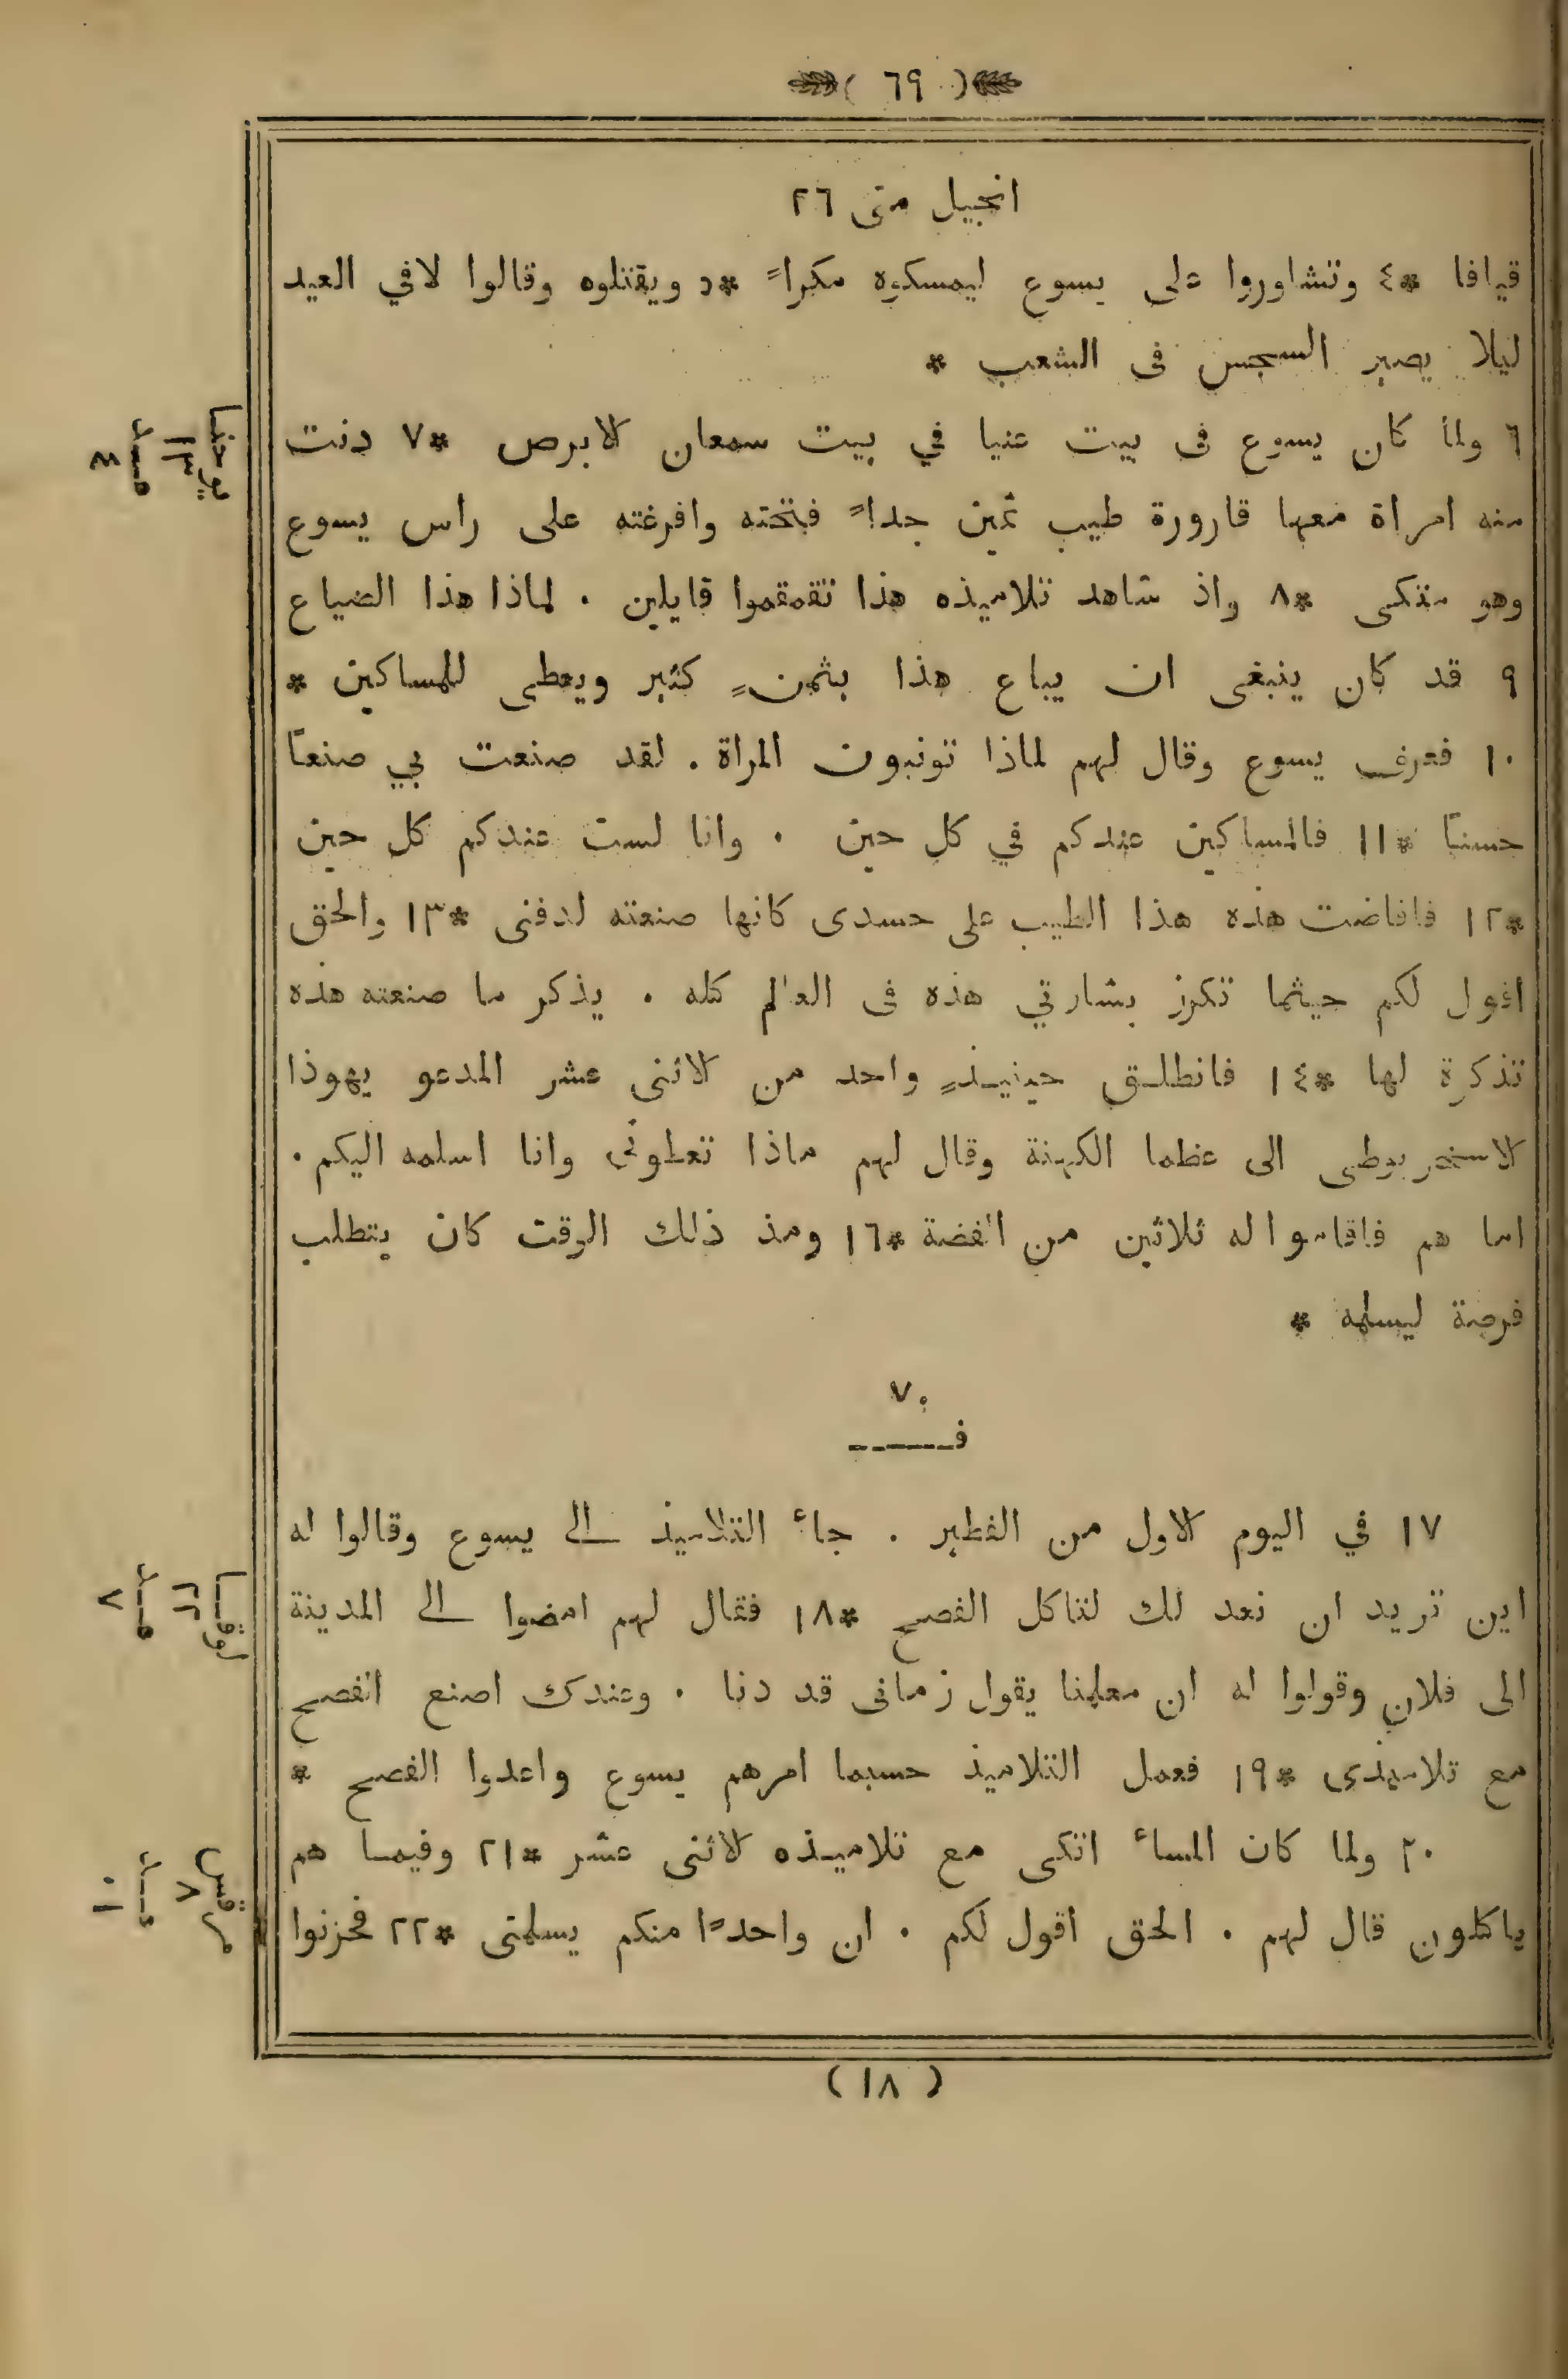 ( ٦٩ )
انجيل متى ٢٦
قيافا *٤ وتشاوروا على يسوع ليمسكوه مكراً *٥ ويقتلوه وقالوا لافي العيد
ليلا يصير السجس فى الشعب *
٦ ولما كان يسوع فى بيت عنيا في بيت سمعان الابرص *٧ دنت
منه امراة معها قارورة طيب ثمين جداً فتحته وافرغته على راس يسوع
وهو متكى *٨ واذ شاهد تلاميذه هذا تقمقموا قايلين . لماذا هذا الضياع
٩ قد كان ينبغى ان يباع هذا بثمنٍ كثير ويعطى للمساكين *
١٠ فعرف يسوع وقال لهم لماذا تونبون المراة . لقد صنعت بي صنعاً
حسناً *١١ فالمساكين عندكم في كل حين . وانا لست عندكم كل حين
*١٢ فافاضت هذه هذا الطيب على حسدى كانها صنعته لدفنى *١٣ والحق
اقول لكم حيثما تكرز بشارتي هذه فى العالم كله . يذكر ما صنعته هذه
تذكرة لها *١٤ فانطلق حينيذٍ واحد من الاثنى عشر المدعو يهوذا
الاسخريوطى الى عظما الكهنة وقال لهم ماذا تعطونى وانا اسلمه اليكم .
اما هم فاقاموا له ثلاثين من الفضة *١٦ ومذ ذلك الوقت كان يتطلب
فرصة ليسلمه *
٧٠
ف
١٧ في اليوم الاول من الفطير . جاء التلاميذ الى يسوع وقالوا له
اين تريد ان نعد لك لتاكل الفصح *١٨ فقال لهم امضوا الى المدينة
الى فلان وقولوا له ان معلمنا يقول زمانى قد دنا . وعندك اصنع الفصح
مع تلاميذى *١٩ فعمل التلاميذ حسبما امرهم يسوع واعدوا الفصح *
٢٠ ولما كان المساء اتكى مع تلاميذه الاثنى عشر *٢١ وفيما هم
ياكلون قال لهم . الحق اقول لكم . ان واحداً منكم يسلمنى *٢٢ فحزنوا
( ١٨ )
يوحنا
١٣
لوقا
٢٢
٧
مرقس
٨
١٠